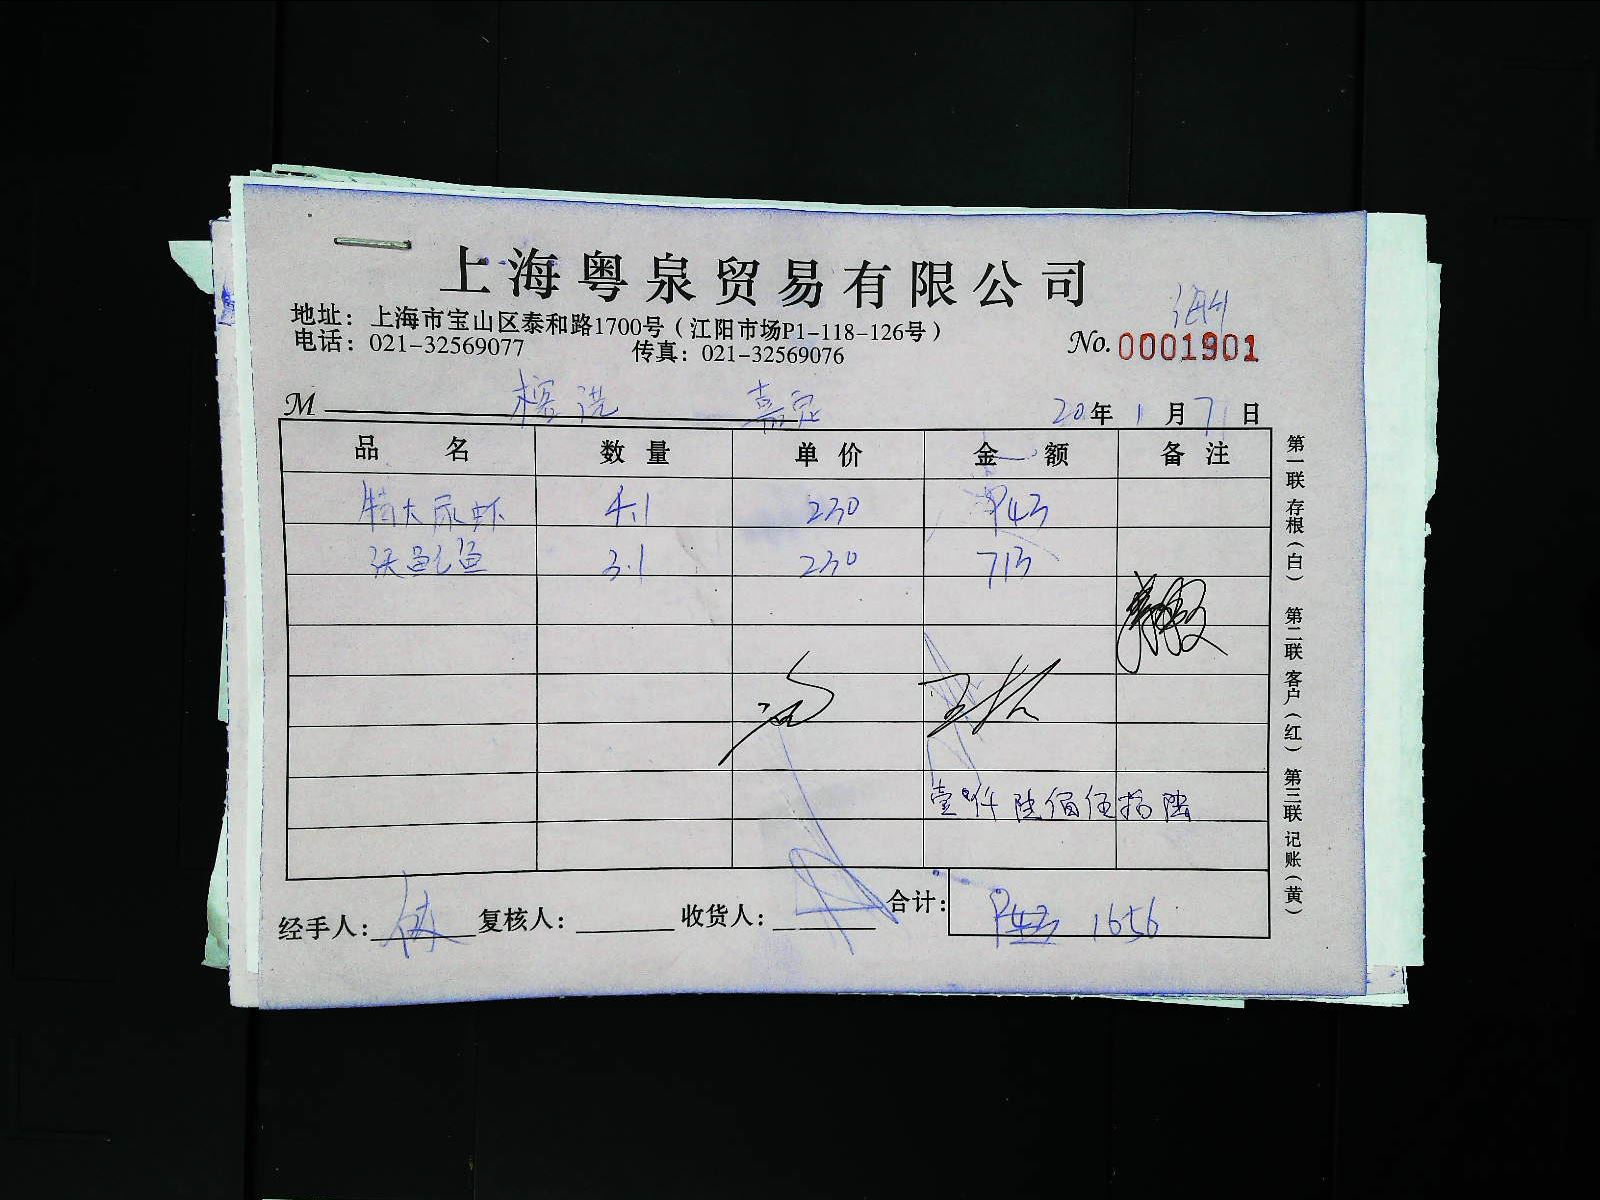 上海粤泉贸易有限公司
地址：上海市宝山区泰和路1700号（江阳市场P1-118-126号）
电话：021-32569077 传真：021-32569076
No.0001901
M 嘉定 20年1月71日
品名 数量 单价 金额 备注
特大尿虾 4.1 230 943
3.1 230 713
壹仟陆佰伍拾陆
经手人： 复核人： 收货人： 合计： 943 1656
第一联 存根（白） 第二联 客户（红） 第三联 记账（黄）